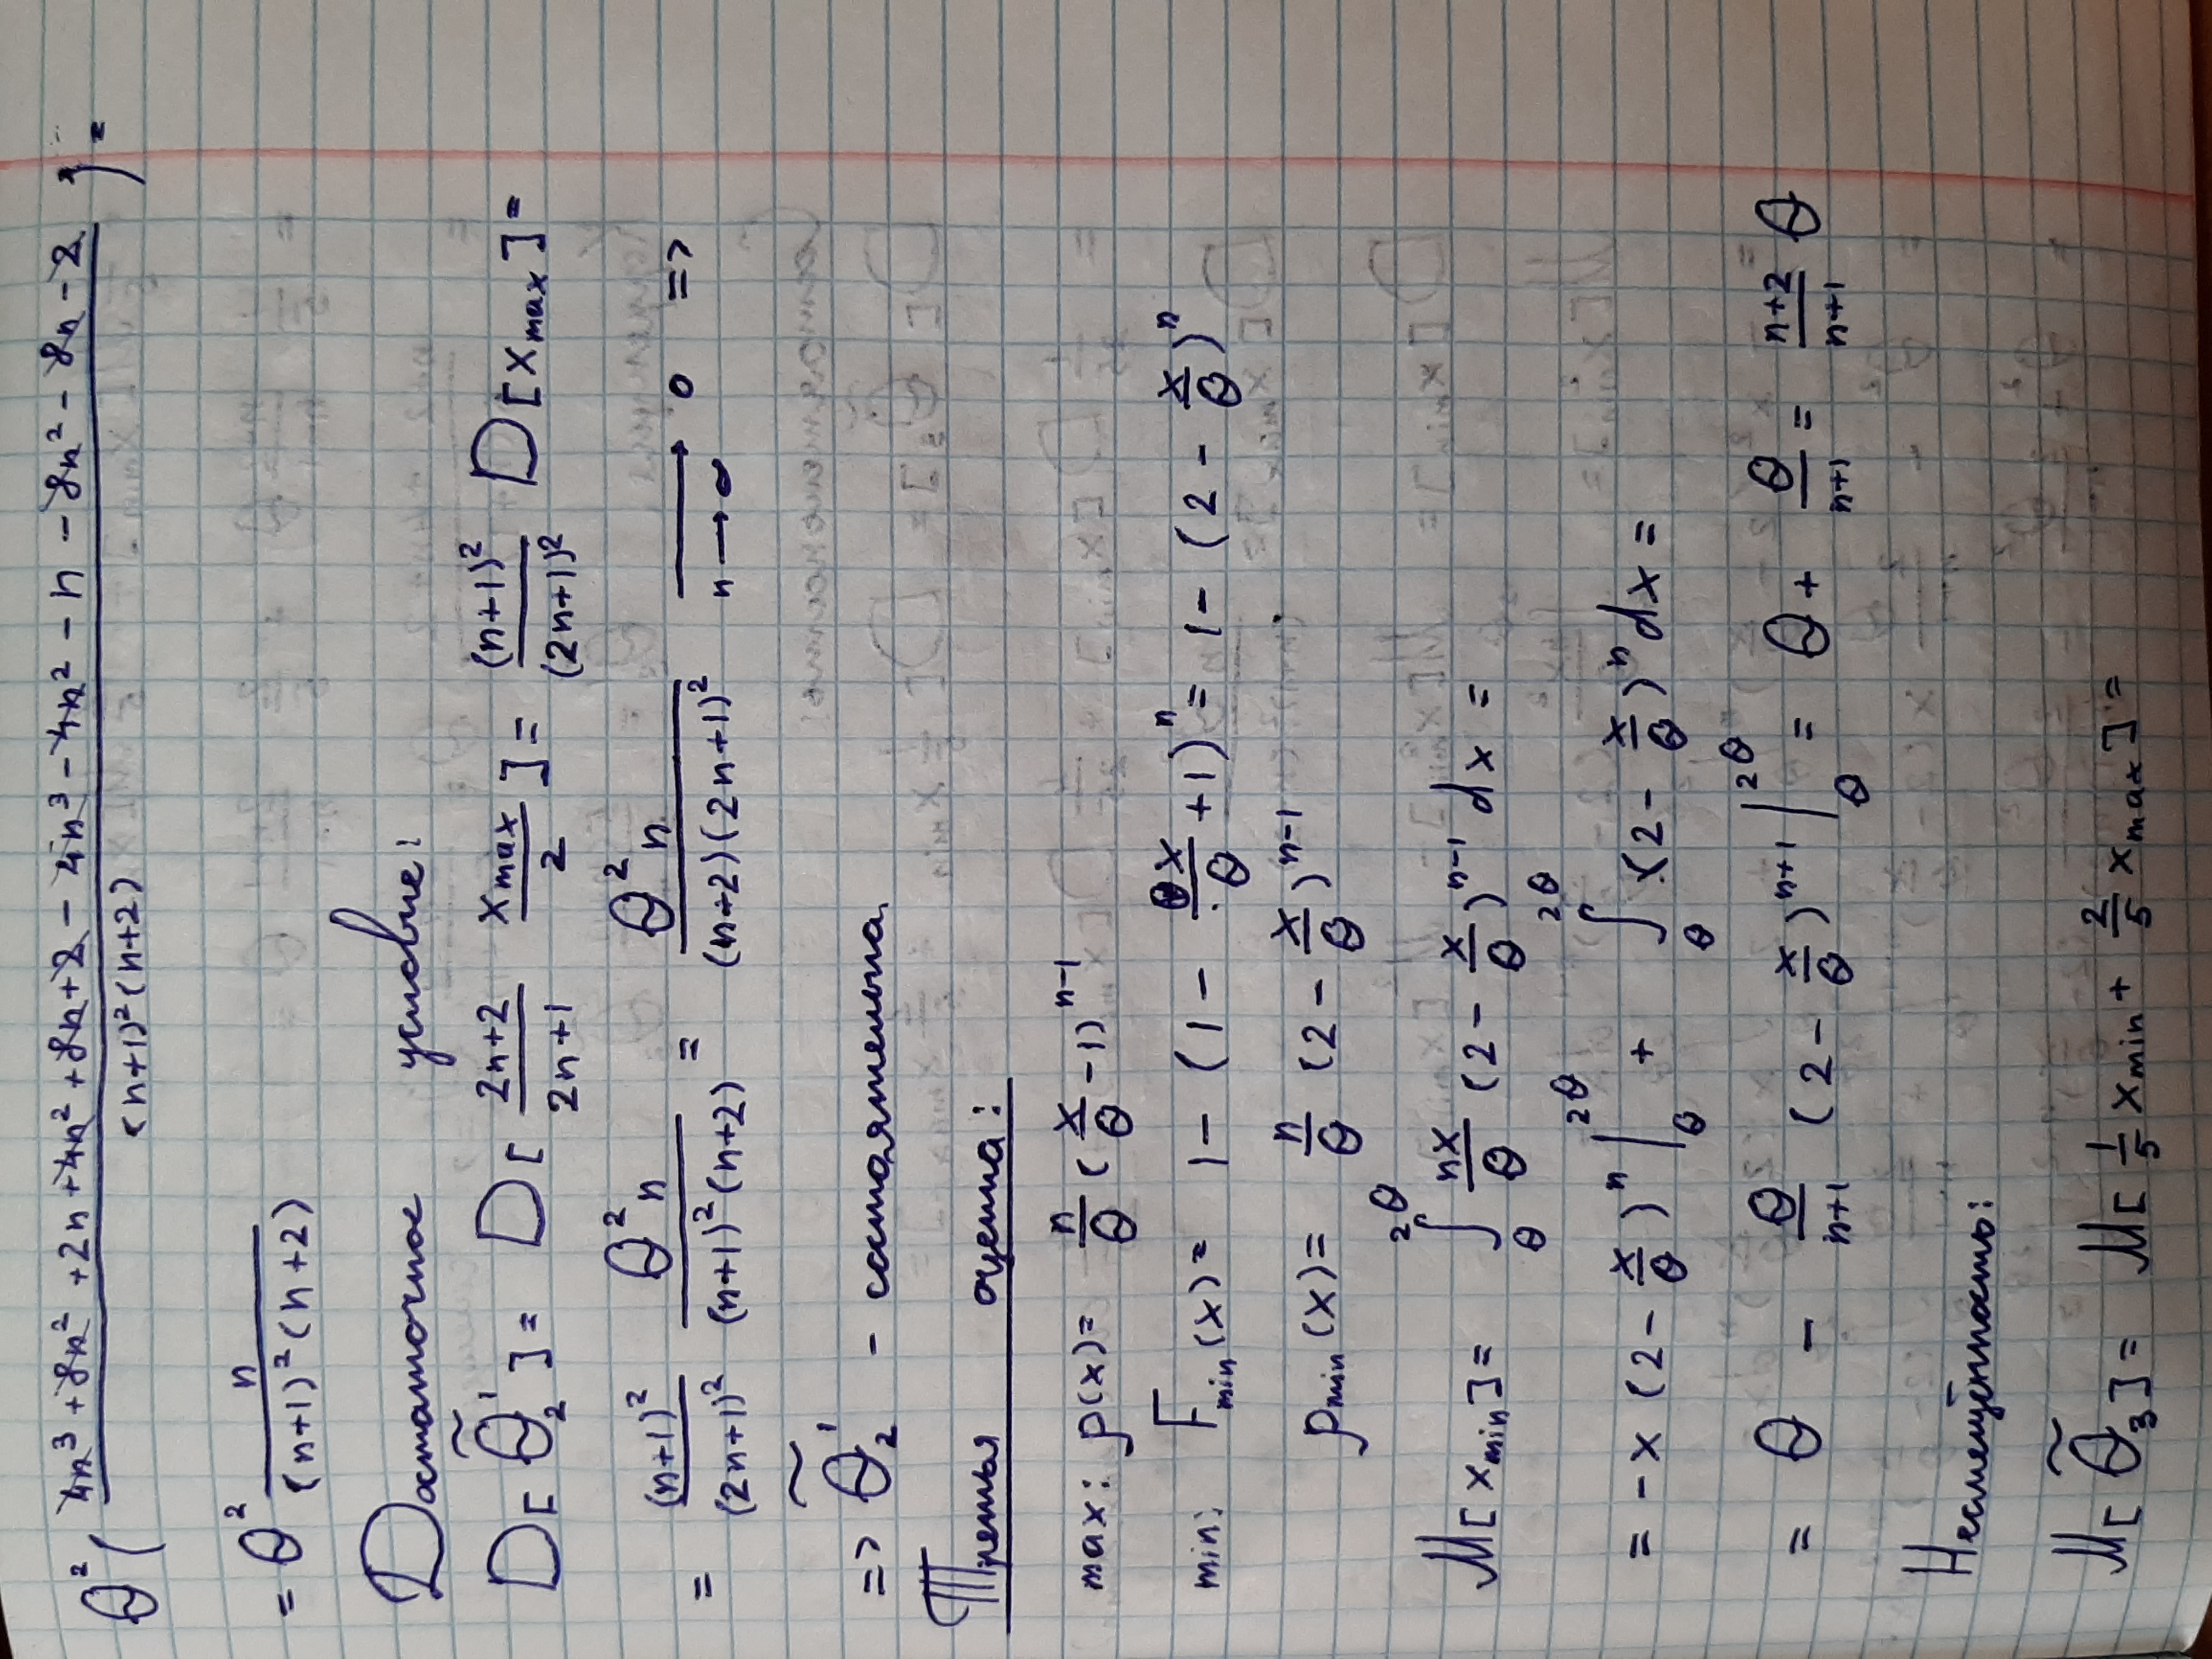 θ² ( (4n³ + 8n² + 2n + 4n² + 8n + 2 − 4n³ − 4n² − n − 8n² − 8n − 2) / ((n+1)²(n+2)) ) =
= θ² n / ((n+1)²(n+2))
Достаточное условие:
D[θ̃₂'] = D[ (2n+2)/(2n+1) · x_max/2 ] = (n+1)²/(2n+1)² D[x_max] =
= (n+1)²/(2n+1)² · θ²n/((n+1)²(n+2)) = θ²n/((n+2)(2n+1)²) ⟶ 0 (n→∞) =>
=> θ̃₂' - состоятельна.
Третья оценка:
max: p(x) = n/θ (x/θ − 1)ⁿ⁻¹
min: F_min(x) = 1 − (1 − x/θ + 1)ⁿ = 1 − (2 − x/θ)ⁿ
p_min(x) = n/θ (2 − x/θ)ⁿ⁻¹
M[x_min] = ∫_θ^2θ nx/θ (2 − x/θ)ⁿ⁻¹ dx =
= −x (2 − x/θ)ⁿ |_θ^2θ + ∫_θ^2θ (2 − x/θ)ⁿ dx =
= θ − θ/(n+1) (2 − x/θ)ⁿ⁺¹ |_θ^2θ = θ + θ/(n+1) = (n+2)/(n+1) θ
Несмещённость:
M[θ̃₃] = M[ 1/5 x_min + 2/5 x_max ] =